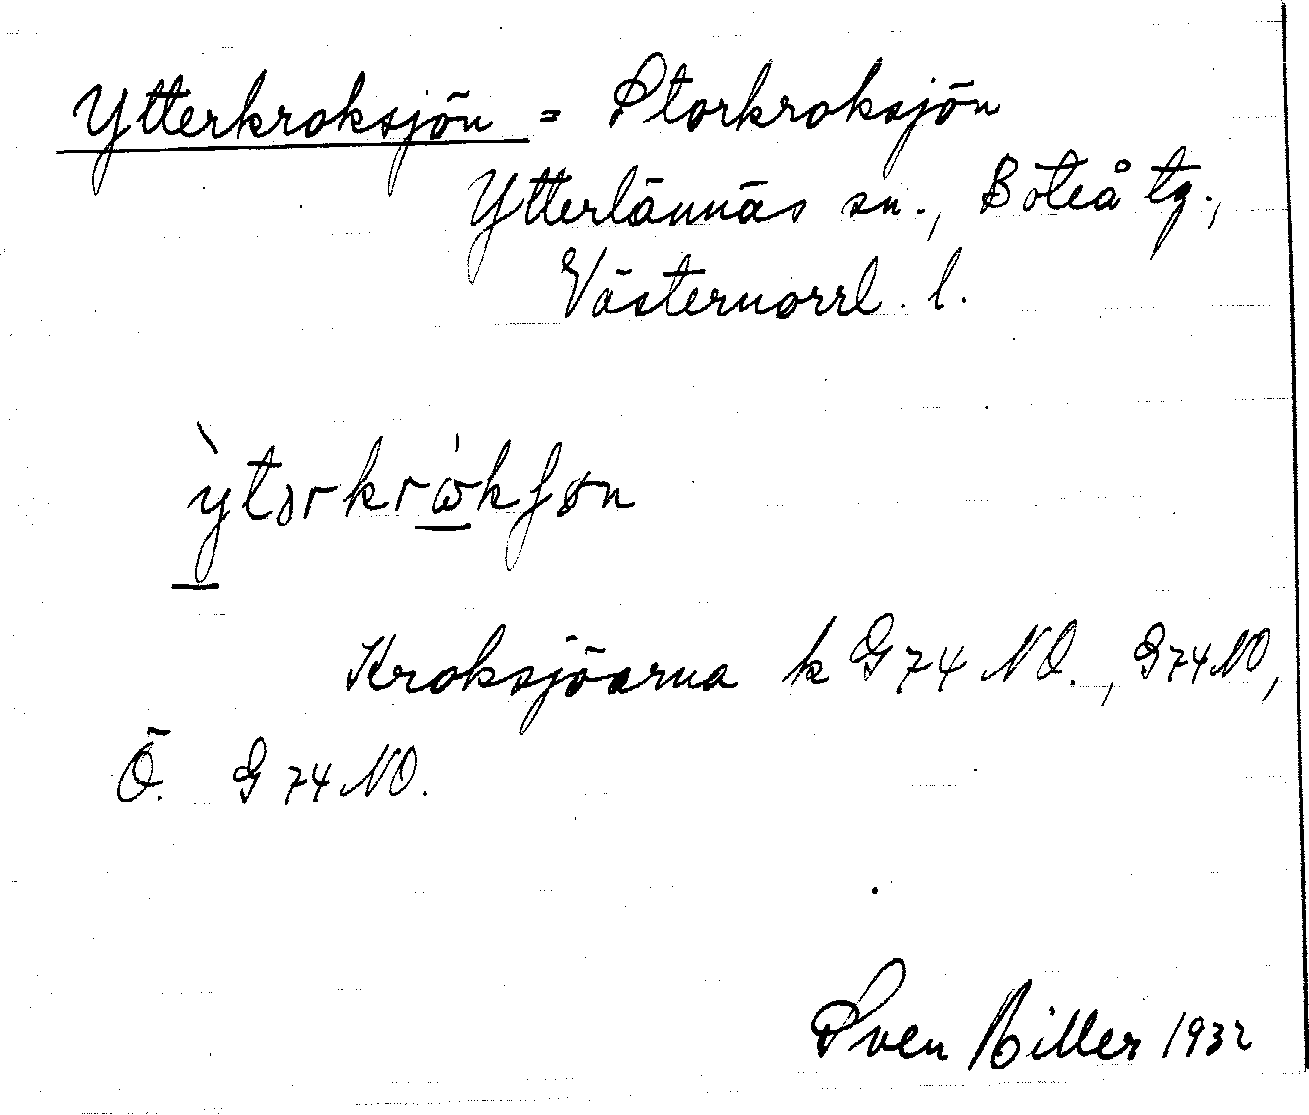 Ytterkroksjön = Storkroksjön
Ytterlännäs sn., Boteå tg.,
Västernorrl. l.
ỳtərkrὼkʃøn
Kroksjöarna k G 74 NO., G 74 NO,
Ö. G 74 NO.
Sven Hiller 1932